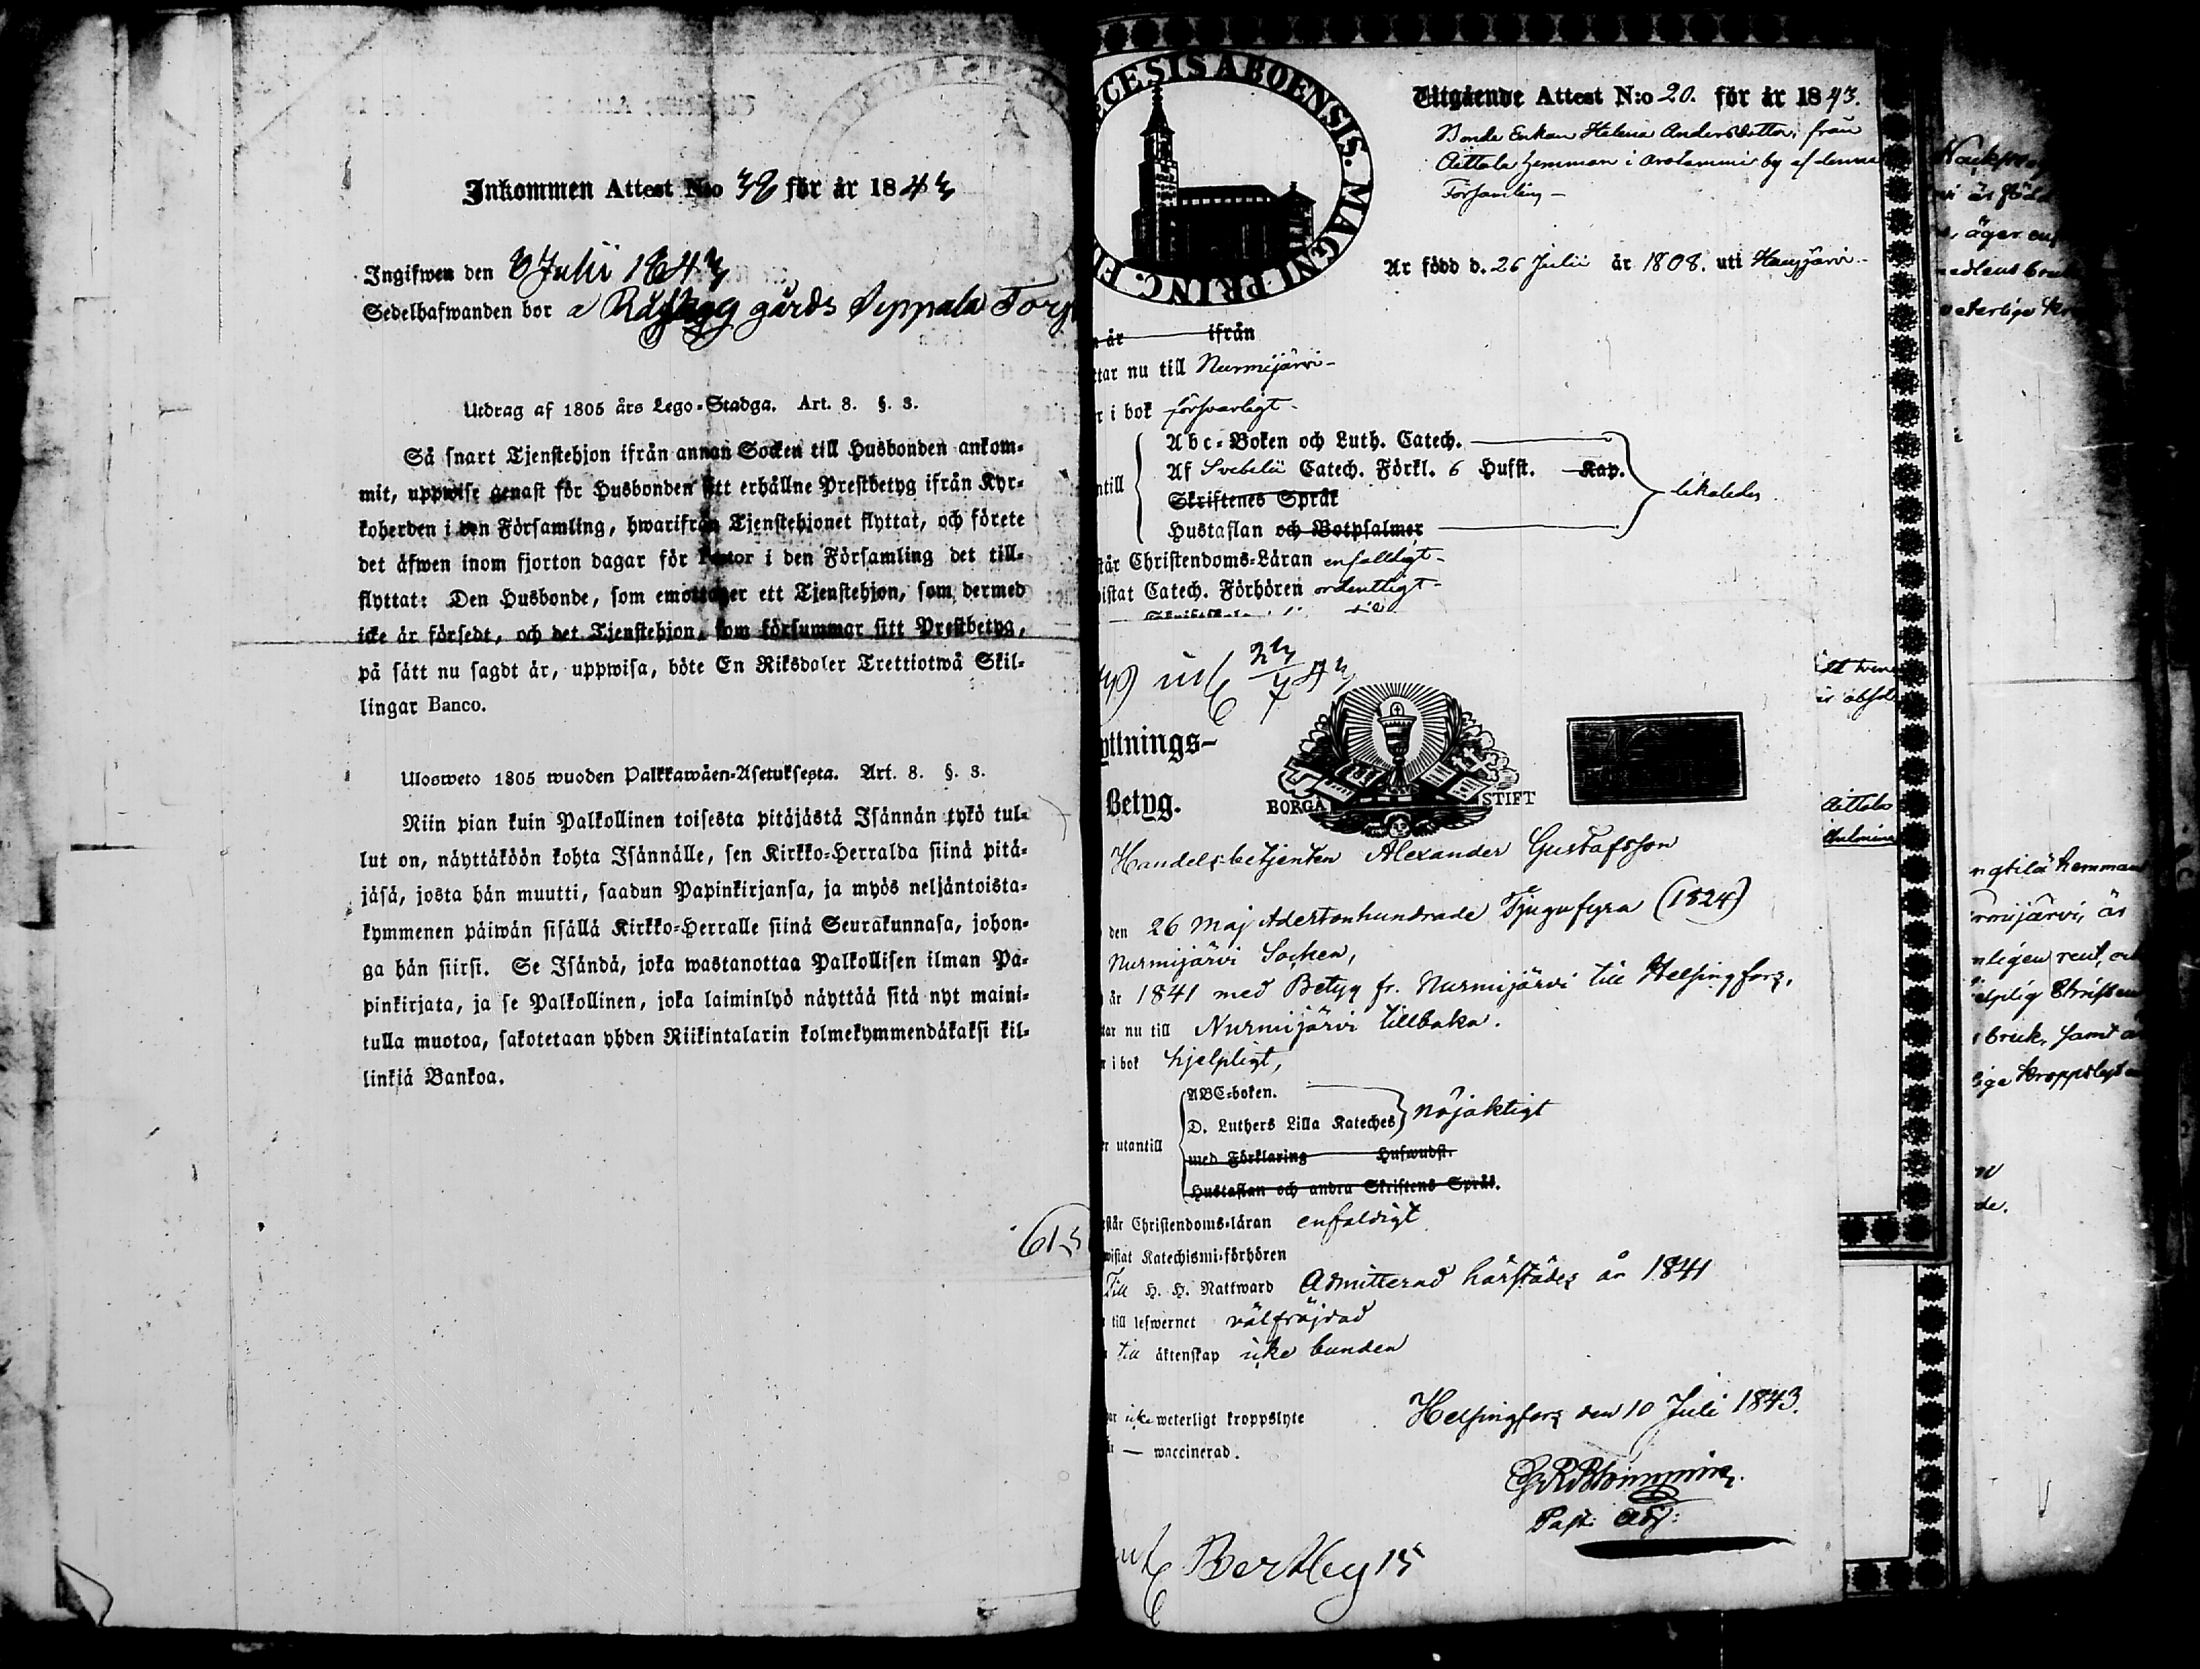 Inkommen Attest N:o 38 för år 1843
Ingifwen den 8 Julii 1843
Sedelhafwanden bor å Råskog gårds Seppala Torp
Utdrag af 1805 års Lego-Stadga. Art. 8. §. 3.
Så snart Tjenstehjon ifrån annan Socken till Husbonden ankom-
mit, uppwise genast för Husbonden sitt erhållne Prestbetyg ifrån Kyr-
koherden i den Församling, hwarifrån Tjenstehjonet flyttat, och förete
det äfwen inom fjorton dagar för Pastor i den Församling det till-
flyttat: Den Husbonde, som emottager ett Tjenstehjon, som dermed
icke är försedt, och det Tjenstehjon, som försummar sitt Prestbetyg,
på sätt nu sagdt är, uppwisa, böte En Riksdaler Trettiotwå Skil-
lingar Banco.
Ulosweto 1805 wuoden Palkkawäen-Asetuksesta. Art. 8. §. 3.
Niin pian kuin Palkollinen toisesta pitäjästä Isännän tykö tul-
lut on, näyttäköön kohta Isännälle, sen Kirkko-Herralda siinä pitä-
jäsä, josta hän muutti, saadun Papinkirjansa, ja myös neljäntoista-
kymmenen päiwän sisällä Kirkko-Herralle siinä Seurakunnasa, johon-
ga hän siirsi. Se Isändä, joka wastanottaa Palkollisen ilman Pa-
pinkirjata, ja se Palkollinen, joka laiminlyö näyttää sitä nyt maini-
tulla muotoa, sakotetaan yhden Riikintalarin kolmekymmendäkaksi kil-
linkiä Bankoa.
CESIS ABOENSIS. MAGNI PRINC. FI
Utgående Attest N:o 20. för år 1843.
Bonde Enkan Helena Andersdotter, från
Aittola hemman i by af denna
Församling –
Är född d. 26 Julii år 1808. uti Hausjärvi –
år ifrån
tar nu till Nurmijärvi –
r i bok försvarligt –
Abc-Boken och Luth. Catech.
Af Svebelii Catech. Förkl. 6 Hufst. Kap.
ntill
likaledes
Skriftenes Språk
Hustaflan och Botpsalmer
står Christendoms-Läran enfalldigt –
istat Catech. Förhören ordentligt –
yttnings-
Betyg.
BORGÅ STIFT
Handelsbetjenten Alexander Gustafsson
den 26 Maj Adertonhundrade Tjugufyra (1824)
Nurmijärvi Socken,
år 1841 med Betyg fr. Nurmijärvi till Helsingfors,
tar nu till Nurmijärvi tillbaka.
r i bok hjelpligt,
ABC-boken.
D. Luthers Lilla Kateches nöjaktigt
r utantill
med Förklaring Hufwudst.
Hustaflan och andra Skriftens Språk.
står Christendoms-läran enfaldigt
wistat Katechismi-förhören
Till H. H. Nattward Admitterad härstädes år 1841
till lefwernet välfräjdad
till äktenskap icke bunden
ar icke weterligt kroppslyte
Helsingfors den 10 Juli 1843.
— waccinerad.
Past: Adj:
är född
äger
Aittola
hemman
rmijärvi, är
nligen
bruk, samt